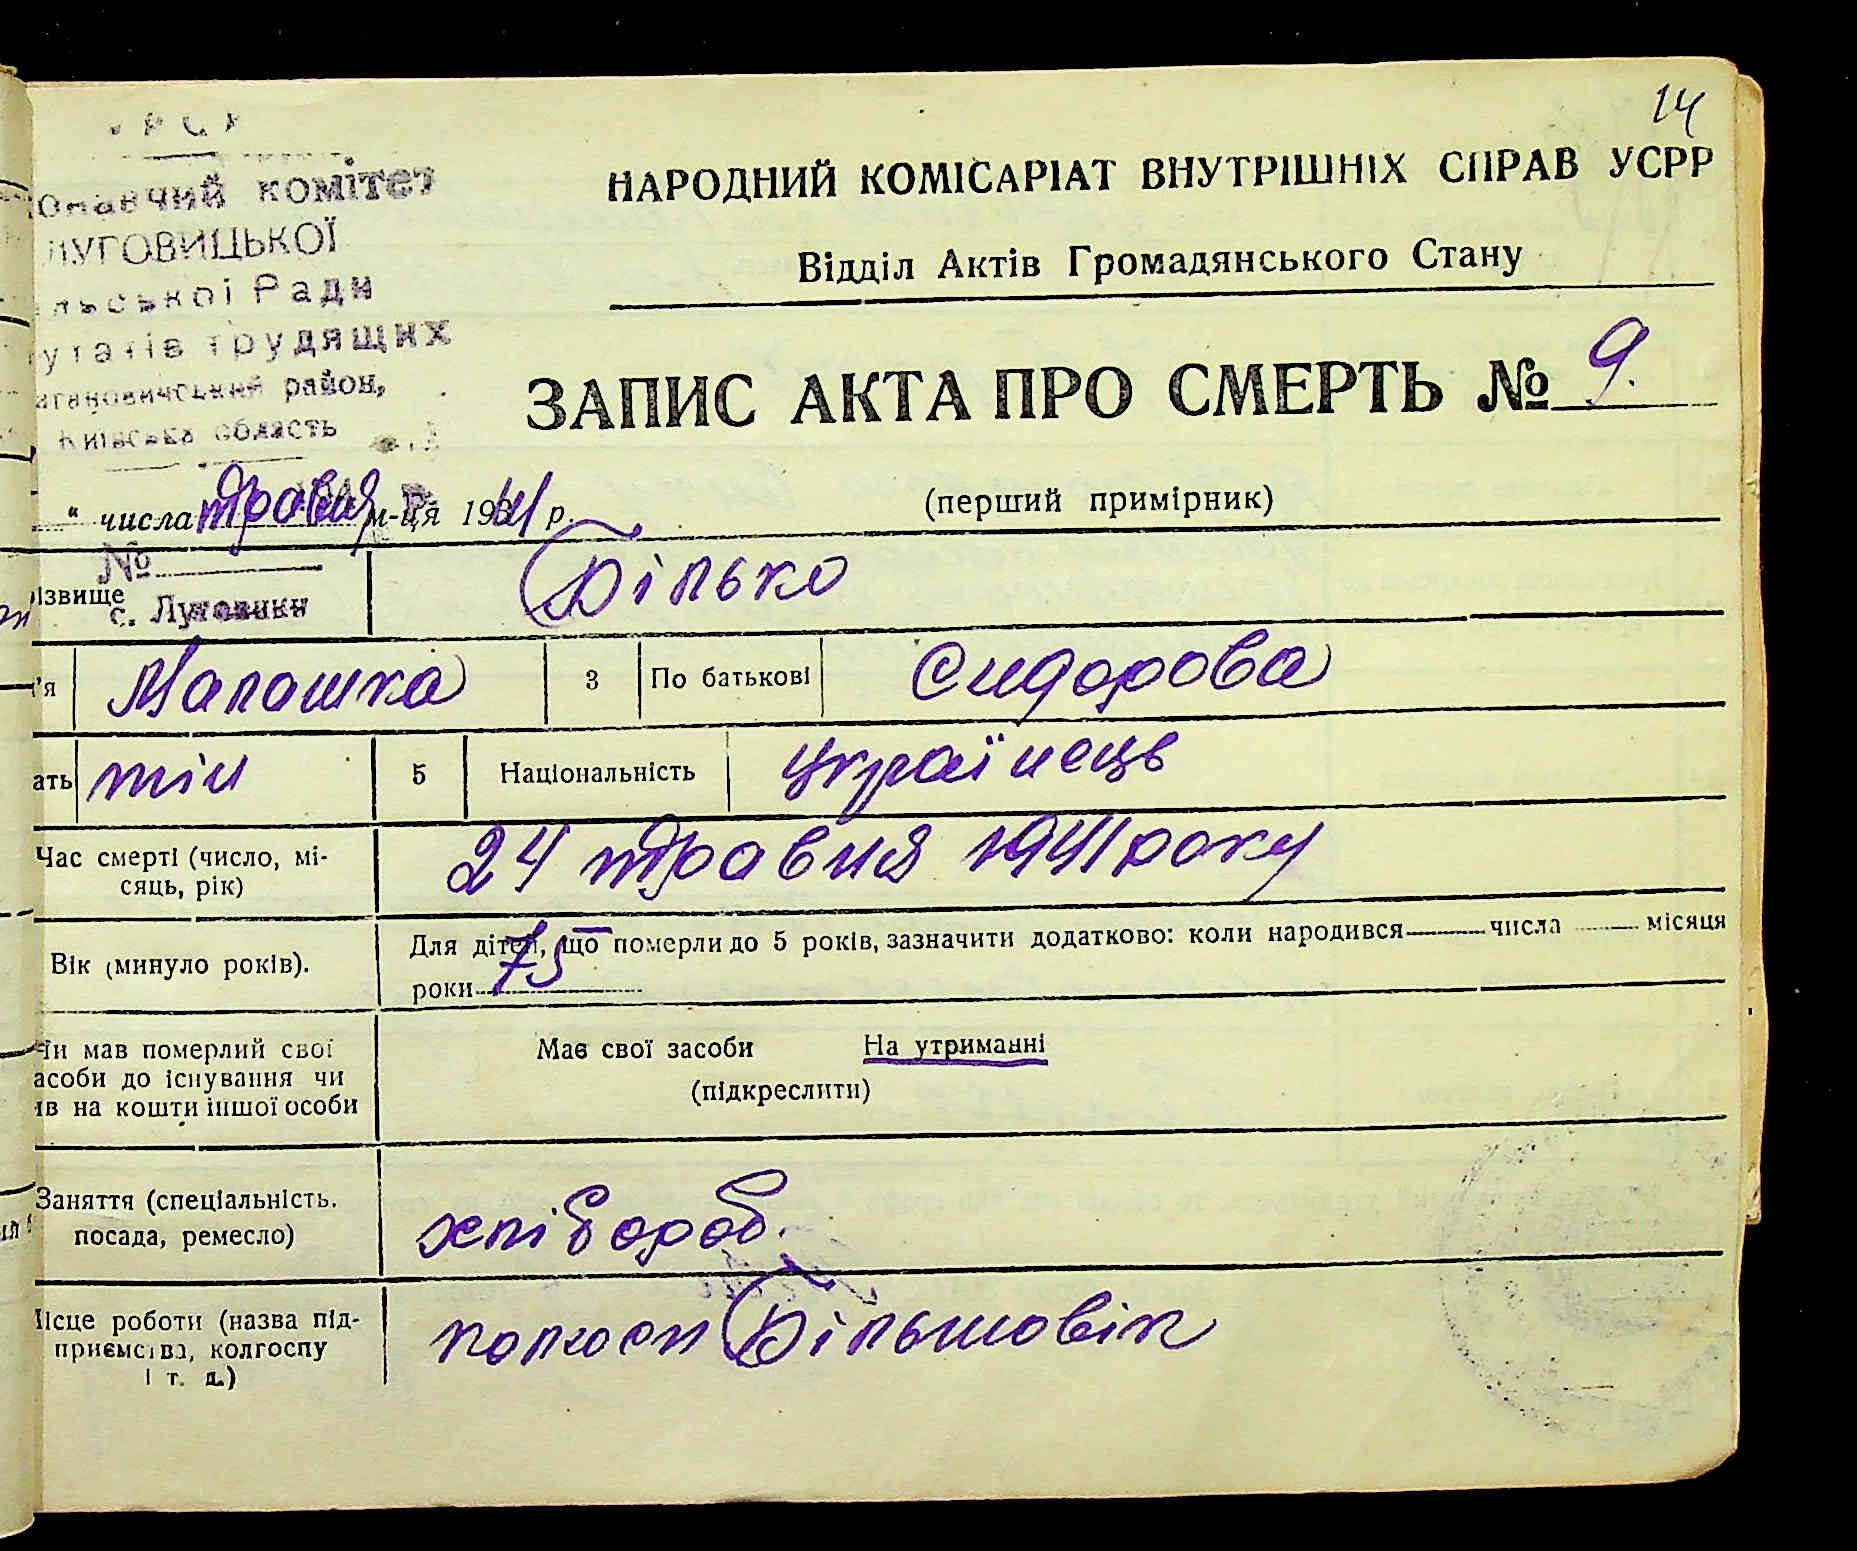 14
УРСР
онавчий комітет
ЛУГОВИЦЬКОЇ
льської Ради
утатів трудящих
агановичський район,
Київська область
НАРОДНИЙ КОМІСАРІАТ ВНУТРІШНІХ СПРАВ УСРР
Відділ Актів Громадянського Стану
ЗАПИС АКТА ПРО СМЕРТЬ № 9.
(перший примірник)
“ числа травня м-ця 1941 р.
№
с. Луговики
ізвище Білько
'я Малашка 3 По батькові Сидорова
ать жін 5 Національність українець
Час смерті (число, мі-
сяць, рік)
24 травня 1941 року
Вік (минуло років).
Для дітей, що померли до 5 років, зазначити додатково: коли народився числа місяця
роки 75
Чи мав померлий свої
асоби до існування чи
ів на кошти іншої особи
Має свої засоби На утриманні
(підкреслити)
Заняття (спеціальність.
посада, ремесло)
хлібороб.
Місце роботи (назва під-
приємства, колгоспу
і т. д.)
колгосп Більшовік